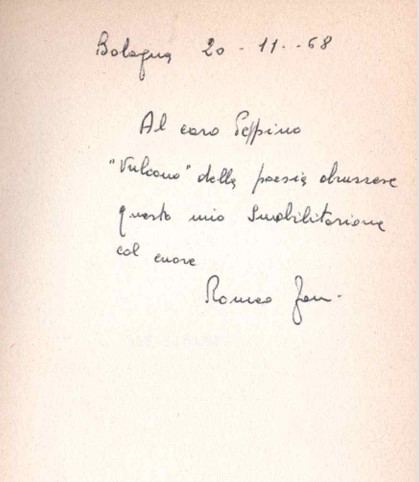 Bologna 20-11-68
Al caro Peppino
"Vulcano" della poesia abruzzese
questo mio Smobilitazione
col cuore
Romeo